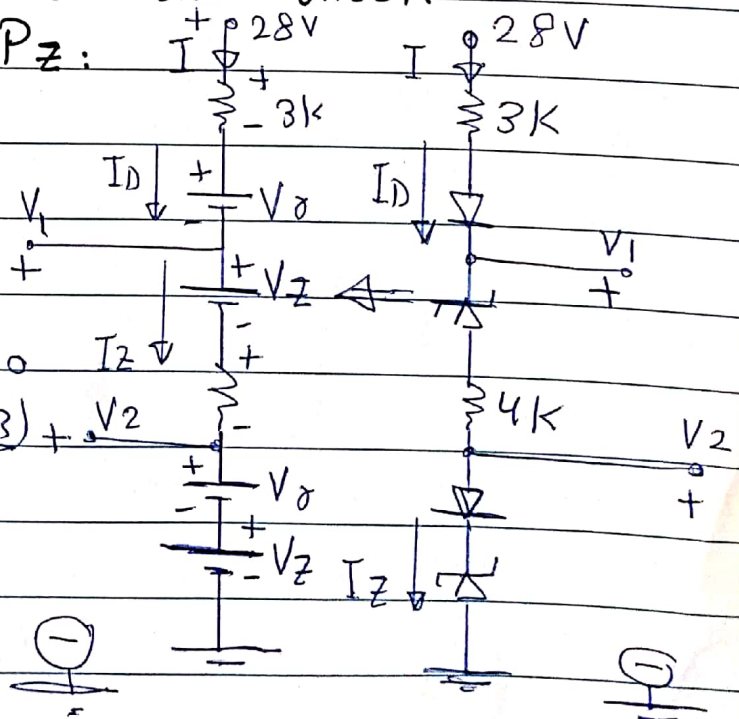 + 28V
Pz: I
+
- 3k
ID + Vγ
-
V1
+
+ Vz
-
Iz +
-
3) + V2
+ Vγ
-
+ Vz
-
28V
I
3K
ID
V1
+
4K
V2
+
Iz